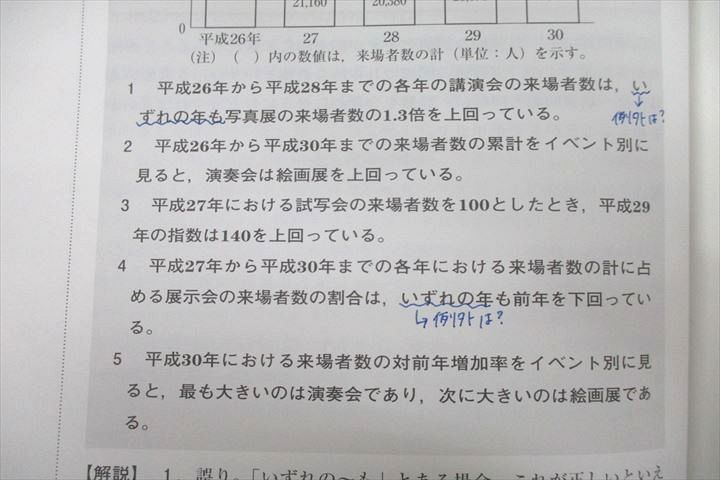 21,160
20,380
0
平成26年 27 28 29 30
(注) ( )内の数値は，来場者数の計（単位：人）を示す。
1 平成26年から平成28年までの各年の講演会の来場者数は，い
ずれの年も写真展の来場者数の1.3倍を上回っている。
例外は？
2 平成26年から平成30年までの来場者数の累計をイベント別に
見ると，演奏会は絵画展を上回っている。
3 平成27年における試写会の来場者数を100としたとき，平成29
年の指数は140を上回っている。
4 平成27年から平成30年までの各年における来場者数の計に占
める展示会の来場者数の割合は，いずれの年も前年を下回ってい
る。
↳例外は？
5 平成30年における来場者数の対前年増加率をイベント別に見
ると，最も大きいのは演奏会であり，次に大きいのは絵画展であ
る。
【解説】 1．誤り。「いずれの〜も」とある場合，これが正しいといえ